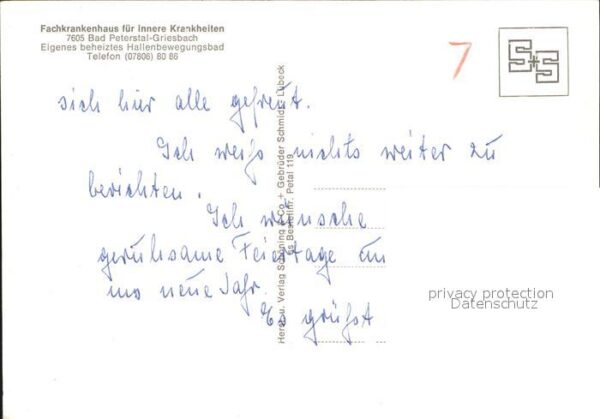 Fachkrankenhaus für innere Krankheiten
7605 Bad Peterstal-Griesbach
Eigenes beheiztes Hallenbewegungsbad
Telefon (07806) 80 86
7
S+S
sich hier alle gefreut.
Ich weiß nichts weiter zu
berichten.
Ich wünsche
geruhsame Feiertage
neue Jahr.
Es grüßt
Herst. u. Verlag Schöning & Co. + Gebrüder Schmidt, Lübeck
Bestellnr. Petal 119
privacy protection
Datenschutz